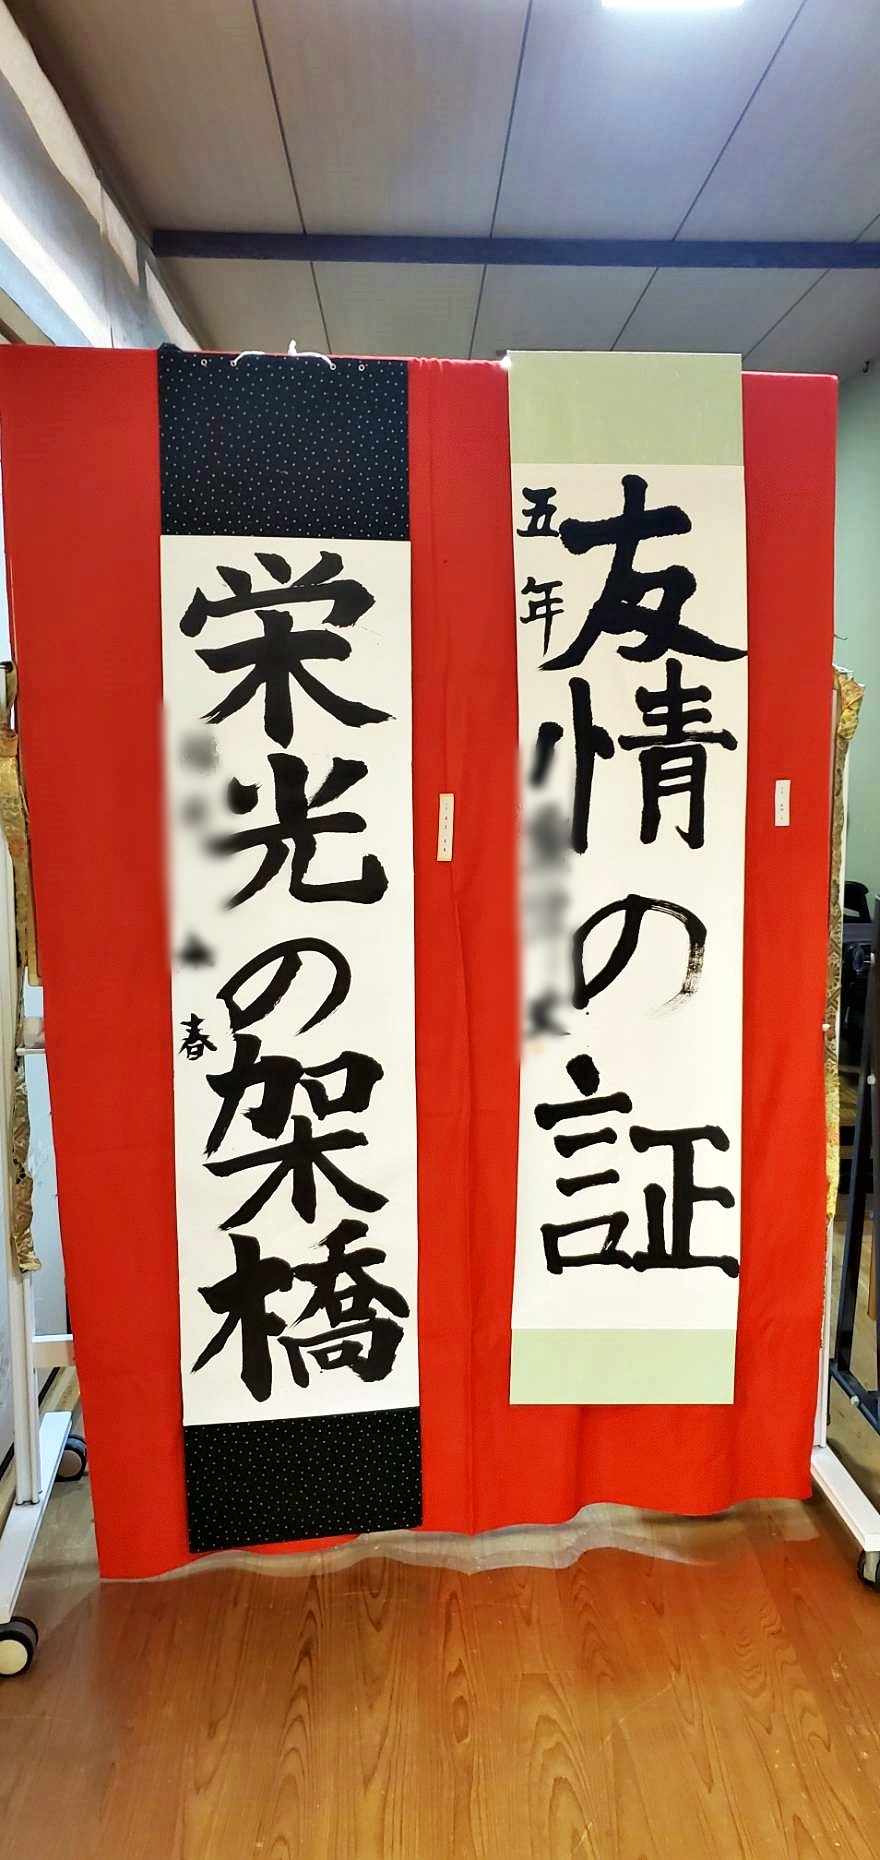 友情の証
五年
栄光の架橋
春